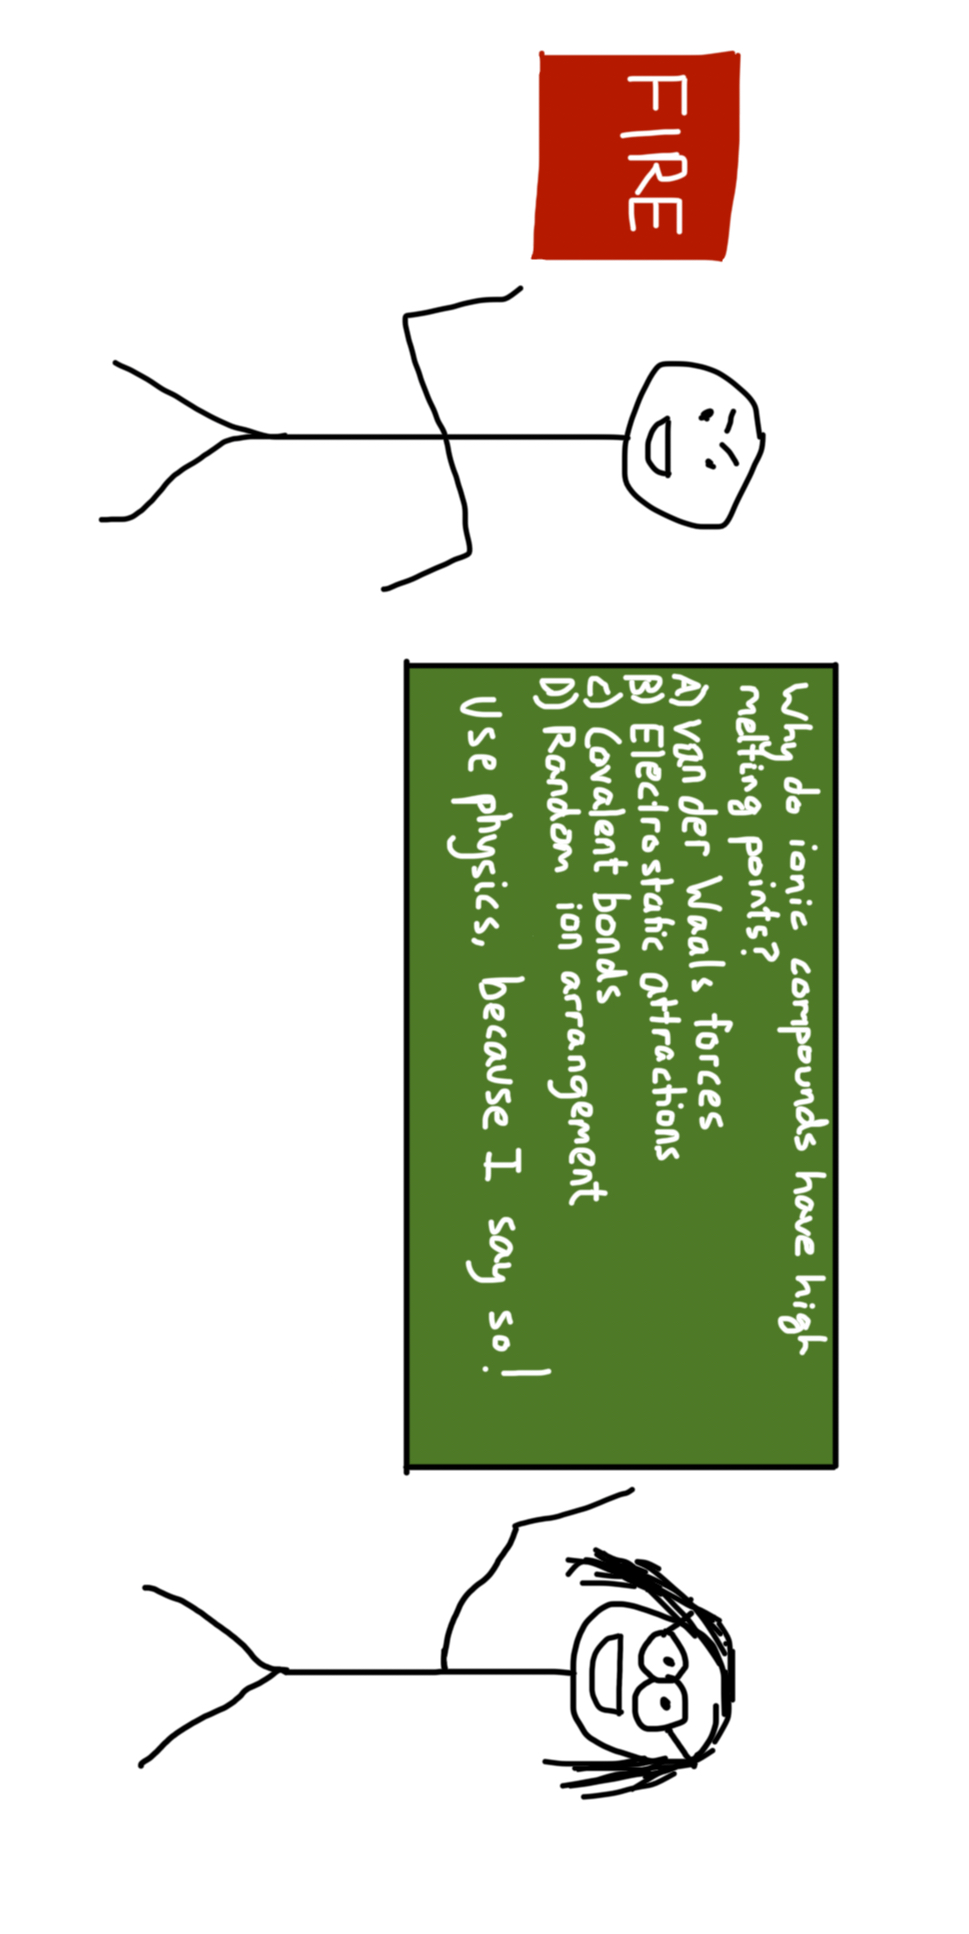 FIRE
Why do ionic compounds have high
melting points?
A) Van der Waals forces
B) Electrostatic attractions
C) Covalent bonds
D) Random ion arrangement
Use physics, because I say so!